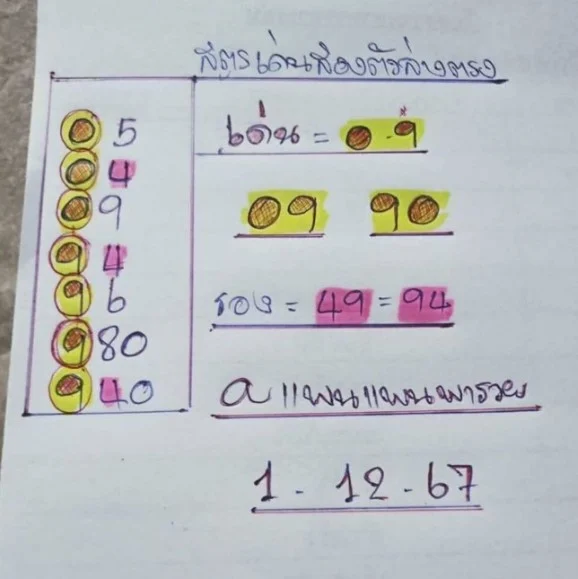 สูตรเด่นสองตัวล่างตรง
05
04
09
94
96
980
940
เด่น = 0-9
09 90
รอง = 49 = 94
a แพนแพนพารวย
1 - 12 - 67